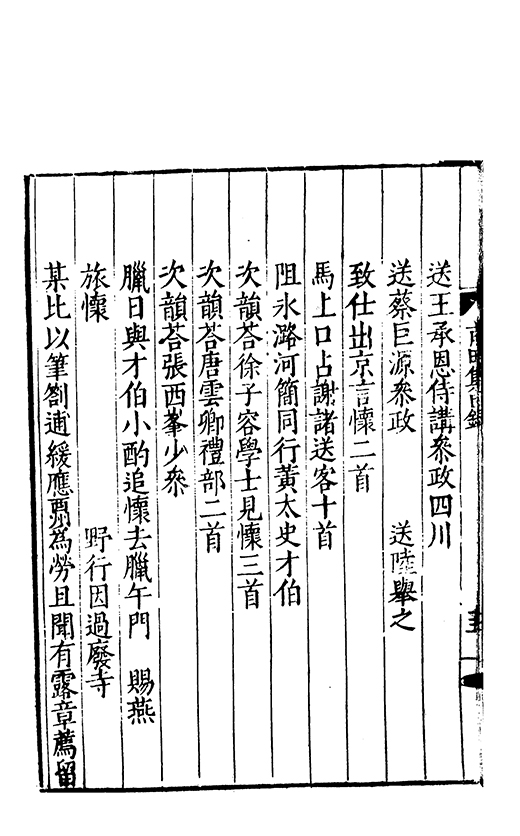 送王承恩侍講叅政四川
送蔡巨源叅政　送陸舉之
致仕出京言懷二首
馬上口占謝諸送客十首
阻氷潞河簡同行黃太史才伯
次韻荅徐子容學士見懷三首
次韻荅唐雲卿禮部二首
次韻荅張西峯少叅
臘日與才伯小酌追懷去臘午門　賜燕
旅懷　野行因過廢寺
某比以筆劄逋緩應酬為勞且聞有露章薦留